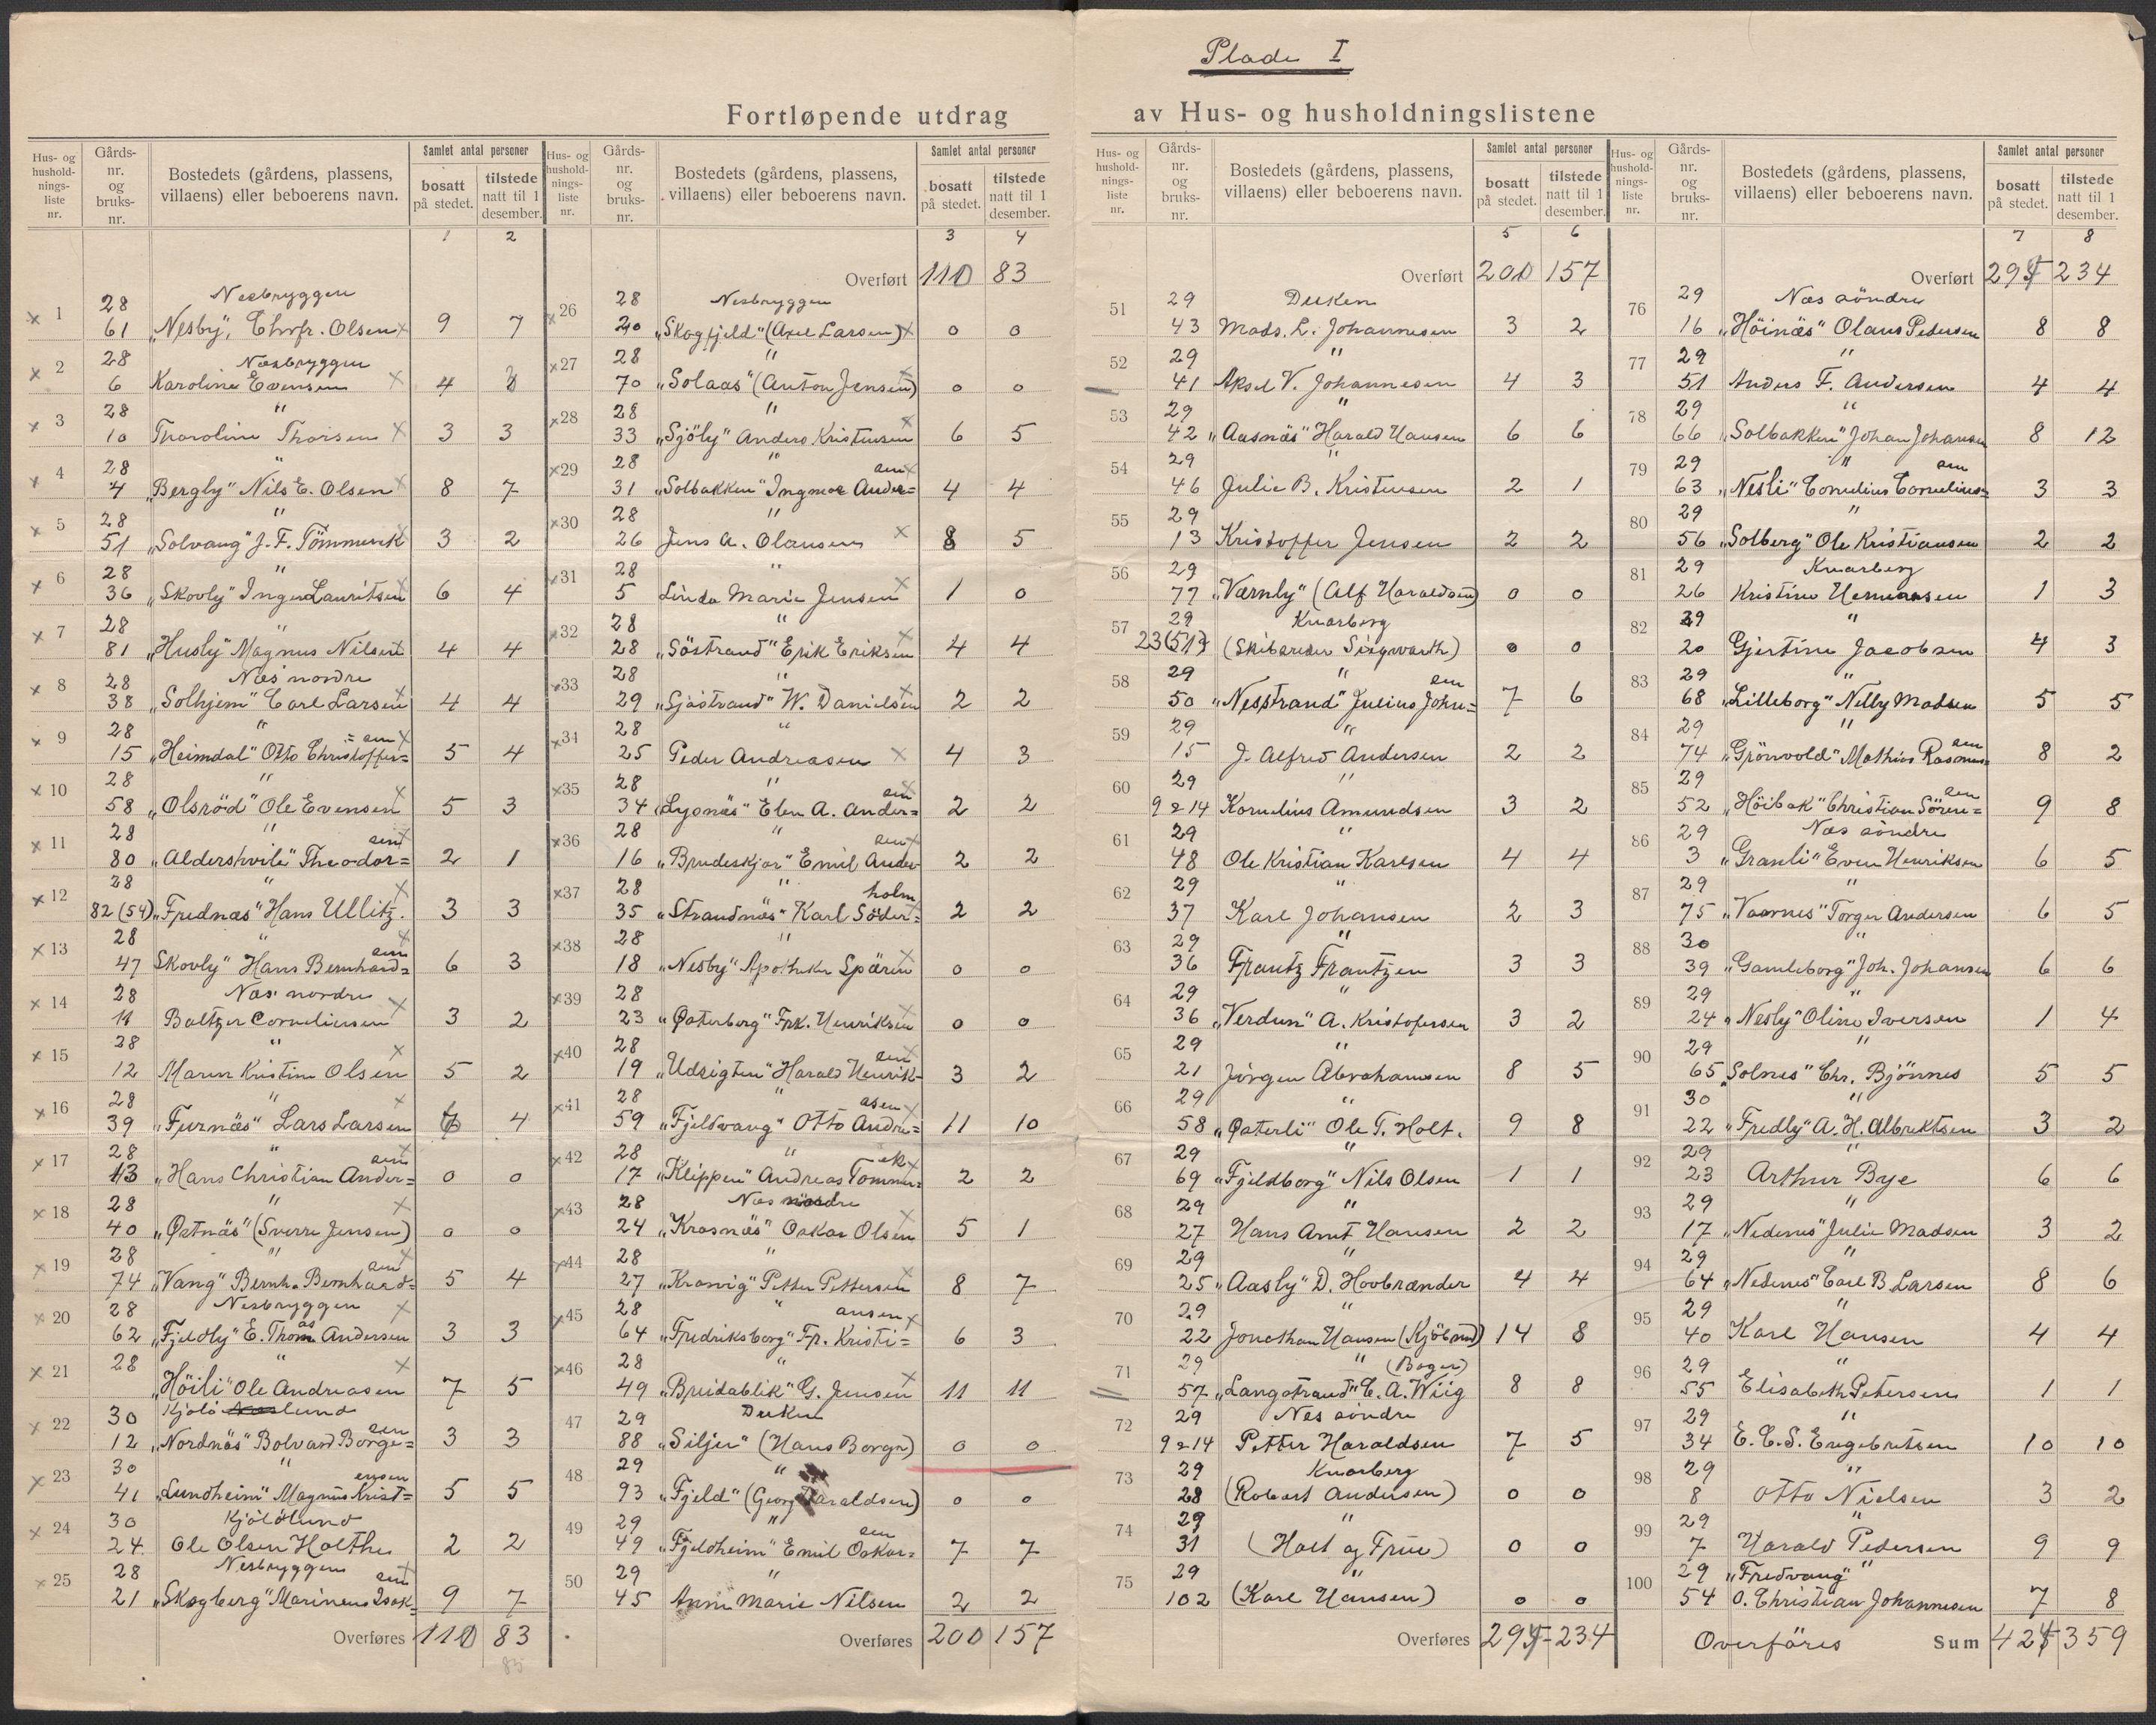 Plade I
Fortløpende utdrag av Hus- og husholdningslistene
Hus- og hushold-nings-liste nr.
Gårds-nr. og bruks-nr.
Bostedets (gårdens, plassens, villaens) eller beboerens navn.
Samlet antal personer
bosatt på stedet.
tilstede natt til 1 desember.
1 2
Nesbryggen
× 1 28 61 „Nesby", Chrfr. Olsen × 9 7
Nesbryggen
× 2 28 6 Karoline Evensen × 4
"
× 3 28 10 Thoroline Thorsen × 3 3
"
× 4 28 4 „Bergly" Nils E. Olsen × 8 7
"
× 5 28 51 „Solvang" J. F. Tömmerek 3 2
"
× 6 28 36 „Skovly" Inger Lauritsen 6 4
"
× 7 28 81 „Husly" Magnus Nilsen 4 4
Næs nordre
× 8 28 38 „Solhjem" Carl Larsen 4 4
"
× 9 28 15 „Heimdal" Otto Christoffer=sen × 5 4
"
× 10 28 58 „Olsröd" Ole Evensen 5 3
"
× 11 28 80 „Aldershvile" Theodor=sen 2 1
"
× 12 28 82 (54) „Frednæs" Hans Ullitz. 3 3
"
× 13 28 47 Skovly" Hans Bernhard=sen 6 3
Næs nordre
× 14 28 11 Baltzer Corneliusen × 3 2
"
× 15 28 12 Maren Kristine Olsen 5 2
"
× 16 28 39 „Furnäs" Lars Larsen 4
"
× 17 28 13 „Hans Christian Ander=sen 0 0
"
× 18 28 40 „Østnäs" (Sverre Jensen) 0 0
"
× 19 28 74 „Vang" Bernh. Bernhard=sen 5 4
Nesbryggen
× 20 28 62 „Fjeldly" E. Thomas Andersen 3 3
"
× 21 28 „Höili" Ole Andreasen 7 5
Kjölölund
× 22 30 12 „Nordnäs" Bolvard Borge=sen 3 3
"
× 23 30 41 „Lundheim" Magnus Krist=ensen 5 5
Kjölölund
× 24 30 24 Ole Olsen Holthe 2 2
Nesbryggen
× 25 28 21 „Skogberg" Marinius Isak=sen 9 7
Overføres 110 83
85
Hus- og hushold-nings-liste nr.
Gårds-nr. og bruks-nr.
Bostedets (gårdens, plassens, villaens) eller beboerens navn.
Samlet antal personer
bosatt på stedet.
tilstede natt til 1 desember.
3 4
Overført 110 83
Nesbryggen
× 26 28 20 „Skogfjeld" (Axel Larsen) × 0 0
"
× 27 28 70 „Solaas" (Anton Jensen) 0 0
"
× 28 28 33 „Sjöly" Anders Kristensen 6 5
"
× 29 28 31 „Solbakken" Ingmar Ander=sen 4 4
"
× 30 28 26 Jens A. Olausen × 8 5
"
× 31 28 5 Linda Marie Jensen × 1 0
"
× 32 28 28 „Söstrand" Erik Eriksen 4 4
"
× 33 28 29 „Sjöstrand" W. Danielsen 2 2
"
× 34 28 25 Peder Andreasen × 4 3
"
× 35 28 34 „Lysnäs" Elen A. Ander=sen 2 2
"
× 36 28 16 „Brudeskjær" Emil Ander=sen 2 2
"
× 37 28 35 „Strandnäs" Karl Söder=holm 2 2
"
× 38 28 18 „Nesby" Apotheker Spären 0 0
"
× 39 28 23 „Østerborg" Frk. Henriksen 0 0
"
× 40 28 19 „Udsigten" Harald Henrik=sen 3 2
"
× 41 28 59 „Fjeldvang" Otto Andre=asen 11 10
"
× 42 28 17 „Klippen" Andreas Tømmer=ek 2 2
Næs nordre
× 43 28 24 „Krosnäs" Oskar Olsen 5 1
"
× 44 28 27 „Krosvig" Petter Pettersen 8 7
"
× 45 28 64 „Fredriksborg" Fr. Kristi=ansen 6 3
"
× 46 28 49 „Breidablik" G. Jensen 11 11
Duken
47 29 88 „Siljer" (Hans Borge) 0 0
"
48 29 93 „Fjeld" (Georg Haraldsen) 0 0
"
49 29 49 „Fjeldheim" Emil Oskar=sen 7 7
"
50 29 45 Anne Marie Nilsen 2 2
Overføres 200 157
Hus- og hushold-nings-liste nr.
Gårds-nr. og bruks-nr.
Bostedets (gårdens, plassens, villaens) eller beboerens navn.
Samlet antal personer
bosatt på stedet.
tilstede natt til 1 desember.
5 6
Overført 200 157
Duken
51 29 43 Mads. L. Johannesen 3 2
"
52 29 41 Aksel V. Johannesen 4 3
"
53 29 42 „Aasnäs" Harald Hansen 6 6
"
54 29 46 Julie B. Kristensen 2 1
55 29 13 Kristoffer Jensen 2 2
56 29 77 „Værnly" (Alf Haraldsen) 0 0
Knarberg
57 29 23 (51) (Skibsreder Sigwarth) 0 0
"
58 29 50 „Nesstrand" Julius John=sen 7 6
"
59 29 15 J. Alfred Andersen 2 2
"
60 29 9 & 14 Kornelius Amundsen 3 2
"
61 29 48 Ole Kristian Karlsen 4 4
"
62 29 37 Karl Johansen 2 3
"
63 29 36 Frantz Frantzen 3 3
"
64 29 36 „Verdun" A. Kristofersen 3 2
"
65 29 21 Jörgen Abrahamsen 8 5
"
66 29 58 „Østerli" Ole T. Holt. 9 8
"
67 29 69 „Fjeldborg" Nils Olsen 1 1
"
68 29 27 Hans Arnt Hansen 2 2
"
69 29 25 „Aasly" D. Hovbrænder 4 4
"
70 29 22 Jonathan Hansen (Kjöbmd) 14 8
" (Boger)
71 29 57 „Langstrand" C. A. Wiig 8 8
Nes söndre
72 29 9 & 14 Petter Haraldsen 7 5
Knarberg
73 29 28 (Robert Andersen) 0 0
"
74 29 31 (Holt og Frue) 0 0
"
75 29 102 (Karl Hansen) 0 0
Overføres 295 234
Hus- og hushold-nings-liste nr.
Gårds-nr. og bruks-nr.
Bostedets (gårdens, plassens, villaens) eller beboerens navn.
Samlet antal personer
bosatt på stedet.
tilstede natt til 1 desember.
7 8
Overført 295 234
Næs söndre
76 29 16 „Höinäs" Olaus Pedersen 8 8
"
77 29 51 Anders F. Andersen 4 4
"
78 29 66 „Solbakken" Johan Johansen 8 12
"
79 29 63 „Nesli" Cornelius Cornelius=sen 3 3
"
80 29 56 „Solberg" Ole Kristiansen 2 2
Knarberg
81 29 26 Kristine Hermansen 1 3
"
82 29 20 Gjertine Jacobsen 4 3
83 29 68 „Lilleborg" Nelly Madsen 5 5
"
84 29 74 „Grönvold" Mathias Rasmus=sen 8 2
85 29 52 „Höibak" Christian Sören=sen 9 8
Næs söndre
86 29 3 „Granli" Even Henriksen 6 5
"
87 29 75 „Vaarnes" Torger Andersen 6 5
"
88 30 39 „Gamleborg" Joh. Johansen 6 6
"
89 29 24 „Nesly" Oline Iversen 1 4
"
90 29 65 „Solnes" Chr. Bjönnes 5 5
"
91 30 22 „Fredly" A. H. Albrektsen 3 2
"
92 29 23 Arthur Bye 6 6
"
93 29 17 „Nedenes" Julie Madsen 3 2
"
94 29 64 „Nedenes" Carl B. Larsen 8 6
95 29 40 Karl Hansen 4 4
"
96 29 55 Elisabeth Petersen 1 1
"
97 29 34 E. C. S. Engebretsen 10 10
"
98 29 8 Otto Nielsen 3 2
"
99 29 7 Harald Pedersen 9 9
„Fredvang" "
100 29 54 O. Christian Johannesen 7 8
Overföres Sum 425 359